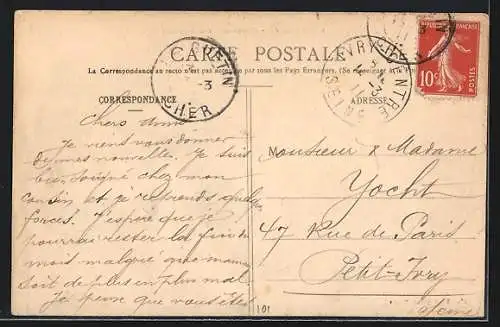 CARTE POSTALE
La Correspondance au recto n'est pas acceptée par tous les Pays Etrangers. (Se renseigner
CORRESPONDANCE
ADRESSE
CHER
3
IVRY-CENTRE
SEINE
RÉPUBLIQUE FRANÇAISE
10c
POSTES
Chers amis
Je viens vous donner
de mes nouvelles. Je suis
bien soigné chez mon
cousin et je reprends quelques
forces. J'espère que je
pourrai rester la fin du
mois malgré que maman
soit de plus en plus mal
Je pense que vous êtes
Monsieur & Madame
Yocht
47 Rue de Paris
Petit-Ivry
Seine
101